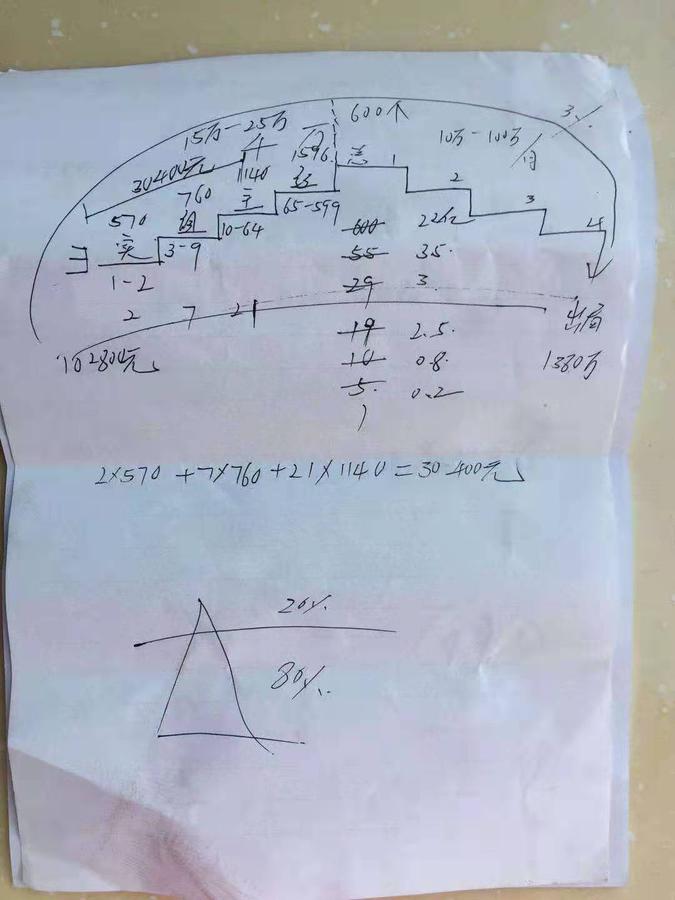 600个
3%
15万-25万
10万-100万
/月
30400元
1596
1140
总
1
760
经
2
570
主
65-599
3
实
3-9
10-64
600
22亿
4
1-2
55
35.
29
3.
2 7 21
出局
10280元
19
2.5.
1380万
10
0.8.
5.
0.2
2×570+7×760+21×1140=30400元
20%.
80%.